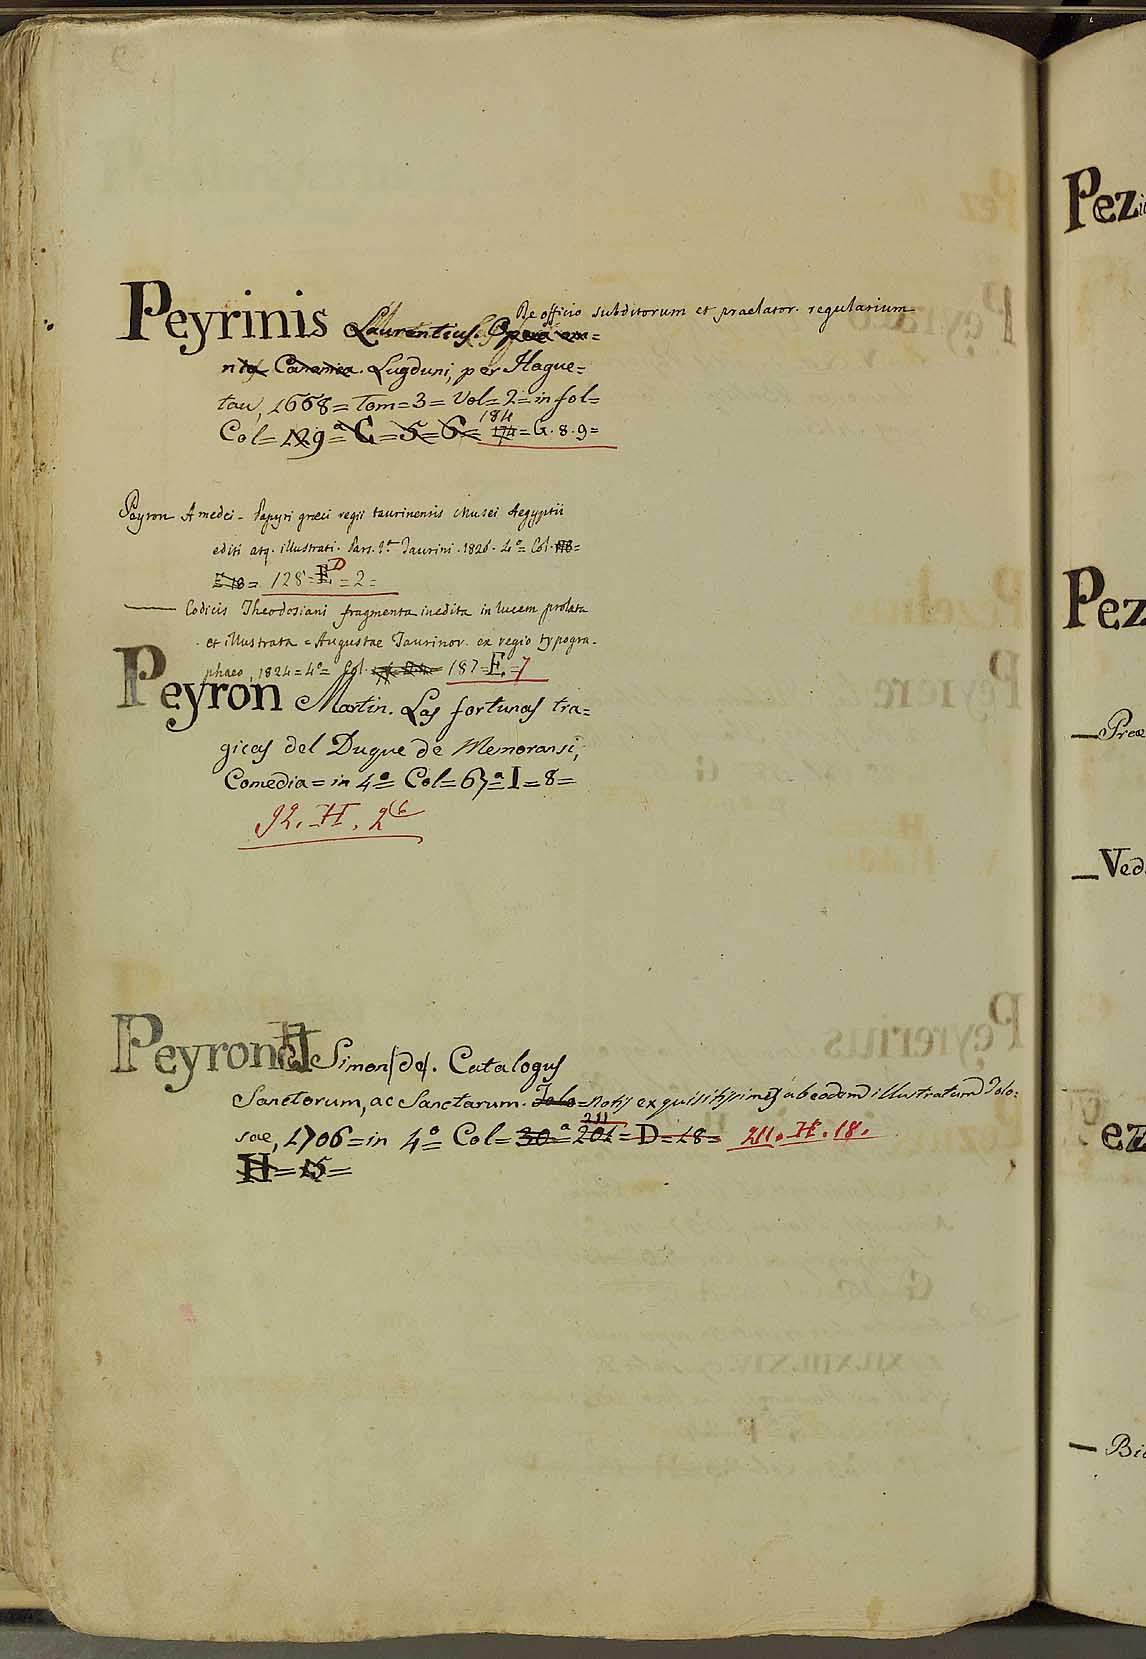 De officio subditorum et praelator. regularium
Peyrinis Laurentius. Opera om=
nia Canonica. Lugduni, per Hague=
tau, 1668= Tom= 3= Vol= 2= in fol=
184
Col= 129ª C= 5= 6= 174= G. 8. 9=
Peyron Amedei - Papyri graeci regii taurinensis Musei Aegyptii
editi atq. illustrati. Pars. 1ª Taurini. 1826. 4º= Col.
128= E D = 2=
Codicis Theodosiani fragmenta inedita in lucem prolata
et illustrata = Augustae Taurinor. ex regio typogra-
phaeo, 1824= 4º= Col. 187= E. = 7
Peyron Martin. Las fortunas tra=
gicas del Duque de Memoransi,
Comedia= in 4º Col= 67ª I= 8=
92. H. 26
Peyronet Simon (de). Catalogus
Sanctorum, ac Sanctarum. Tolo= notis exquisitissimis ab eodem illustratum Tolo:
211
sae, 1706= in 4º Col= 30ª 201= D= 18= 211. H. 18.
H= 15=
Pez
Pez
— Prae
— Ved
ez
— Bi